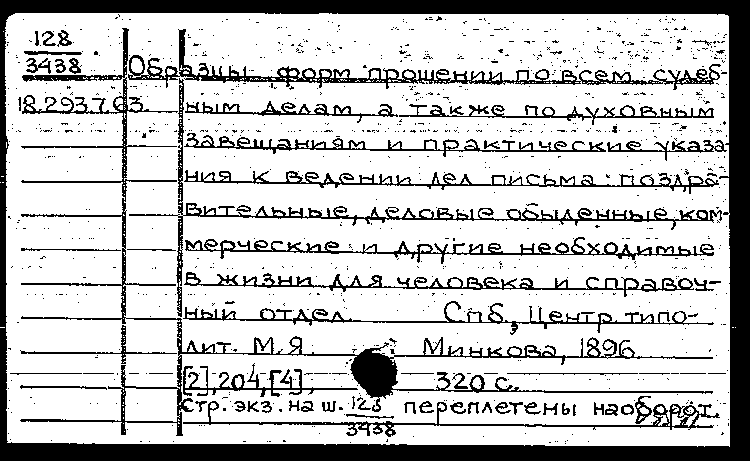 128
3438
Образцы форм прошении по всем судеб-
18.293.7.63.
ным делам, а также по духовным
завещаниям и практические указа-
ния к ведении дел письма: поздра-
вительные, деловые обыденные, ком-
мерческие и другие необходимые
в жизни для человека и справоч-
ный отдел. Спб., Центр. типо-
лит. М.Я. Минкова, 1896.
[2], 204, [4], 320 с.
Стр. экз. на ш. 128 переплетены наоборот.
3438